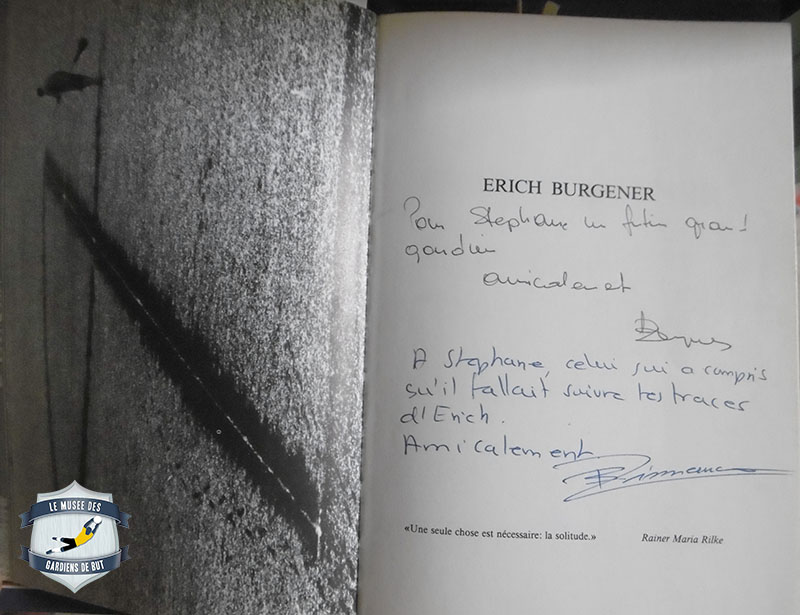 ERICH BURGENER
Pour Stephane un futur grand
gardien
amicalement
A Stephane, celui qui a compris
qu'il fallait suivre les traces
d'Erich.
Amicalement
«Une seule chose est nécessaire: la solitude.» Rainer Maria Rilke
LE MUSEE DES
GARDIENS DE BUT